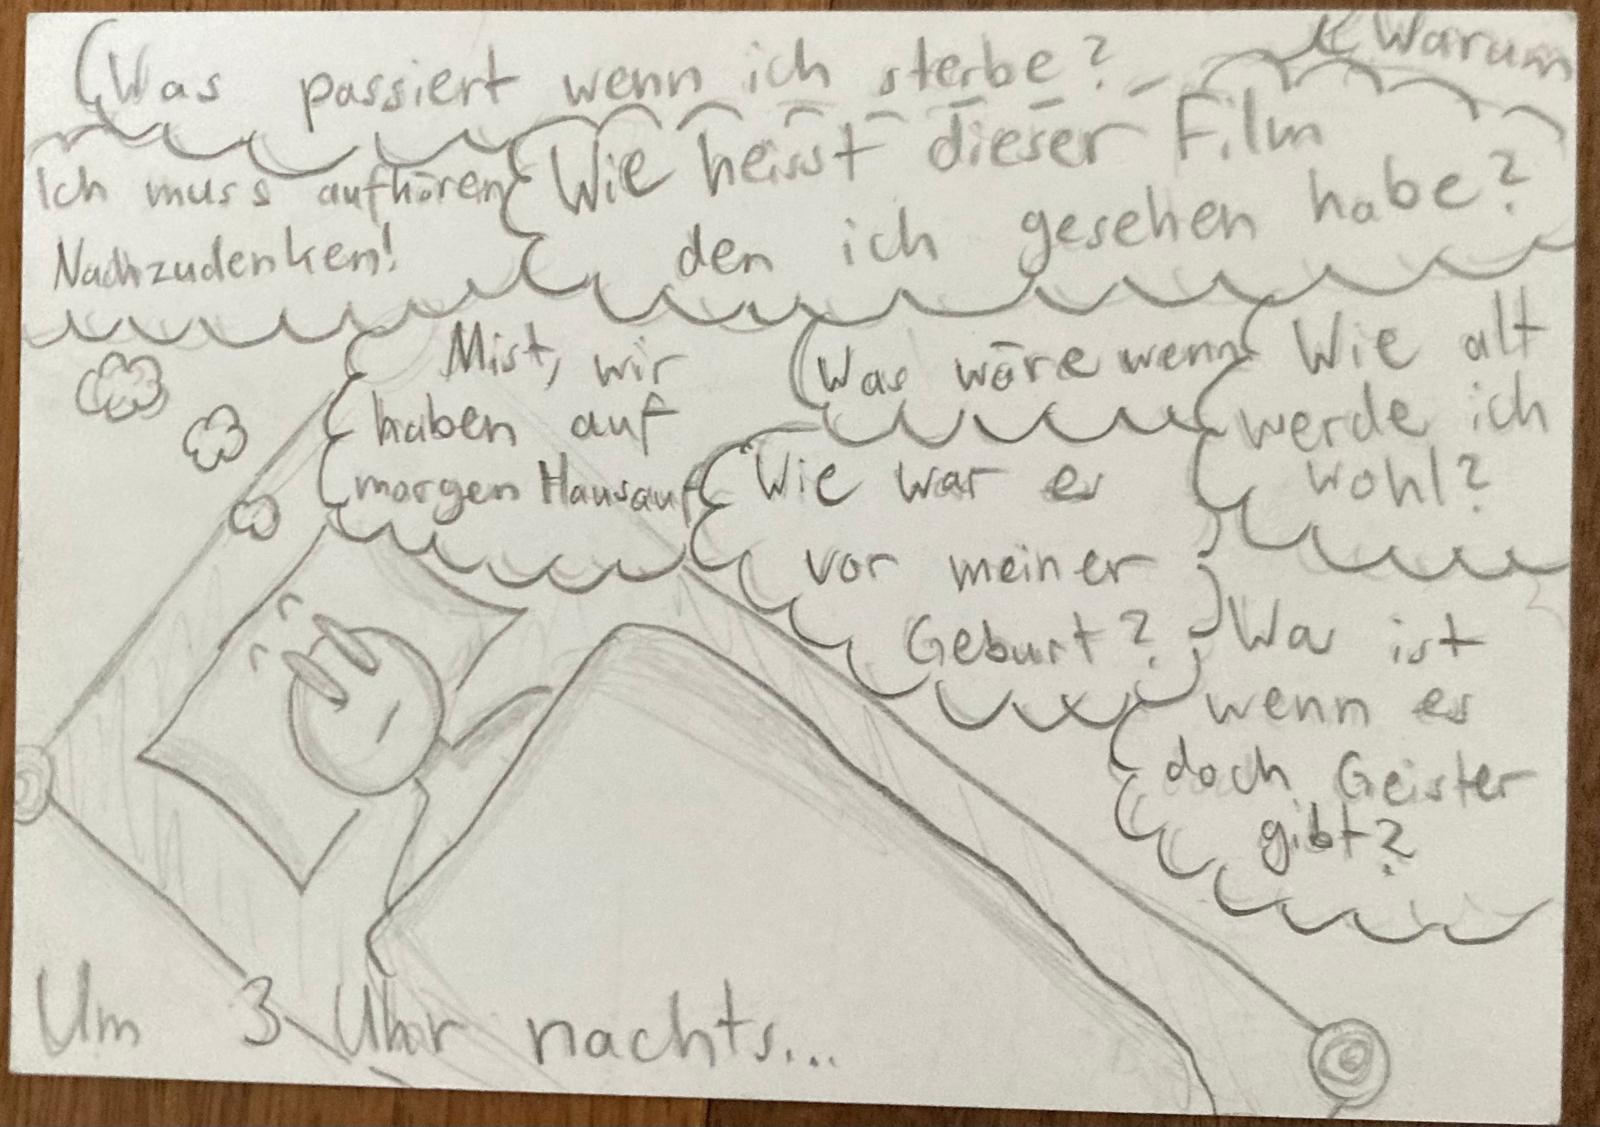 Was passiert wenn ich sterbe?
Warum
Ich muss aufhören
Nachzudenken!
Wie heisst dieser Film
den ich gesehen habe?
Mist, wir
haben auf
morgen Hausauf
Was wäre wenn
Wie alt
werde ich
wohl?
Wie war es
vor meiner
Geburt?
Wa ist
wenn es
doch Geister
gibt?
Um 3 Uhr nachts...